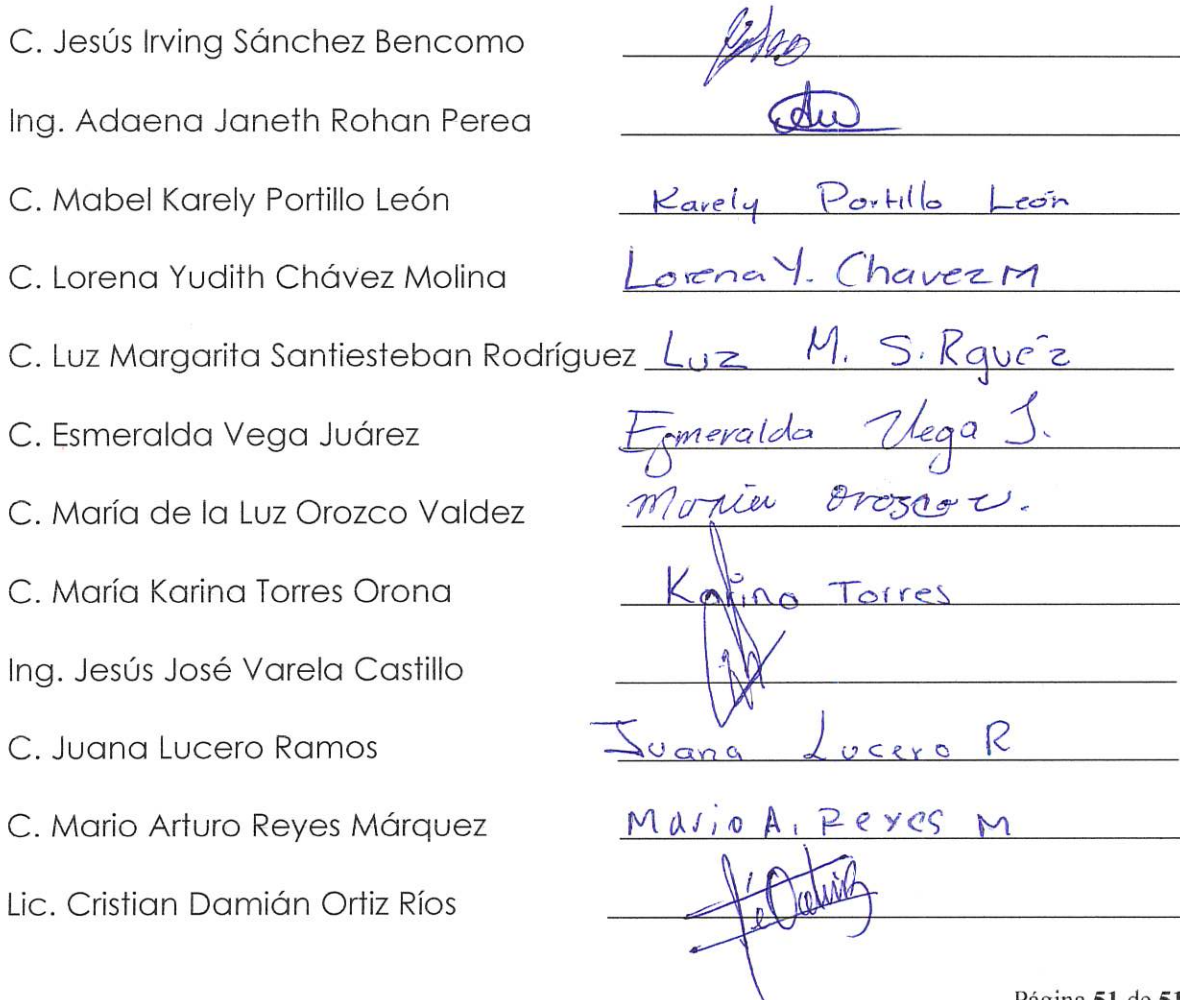 C. Jesús Irving Sánchez Bencomo
Ing. Adaena Janeth Rohan Perea
C. Mabel Karely Portillo León Karely Portillo León
C. Lorena Yudith Chávez Molina Lorena Y. Chavez M
C. Luz Margarita Santiesteban Rodríguez Luz M. S. Rguéz
C. Esmeralda Vega Juárez Esmeralda Vega J.
C. María de la Luz Orozco Valdez Maria Orozco V.
C. María Karina Torres Orona Karina Torres
Ing. Jesús José Varela Castillo
C. Juana Lucero Ramos Juana Lucero R
C. Mario Arturo Reyes Márquez Mario A. Reyes M
Lic. Cristian Damián Ortiz Ríos
Página 51 de 51